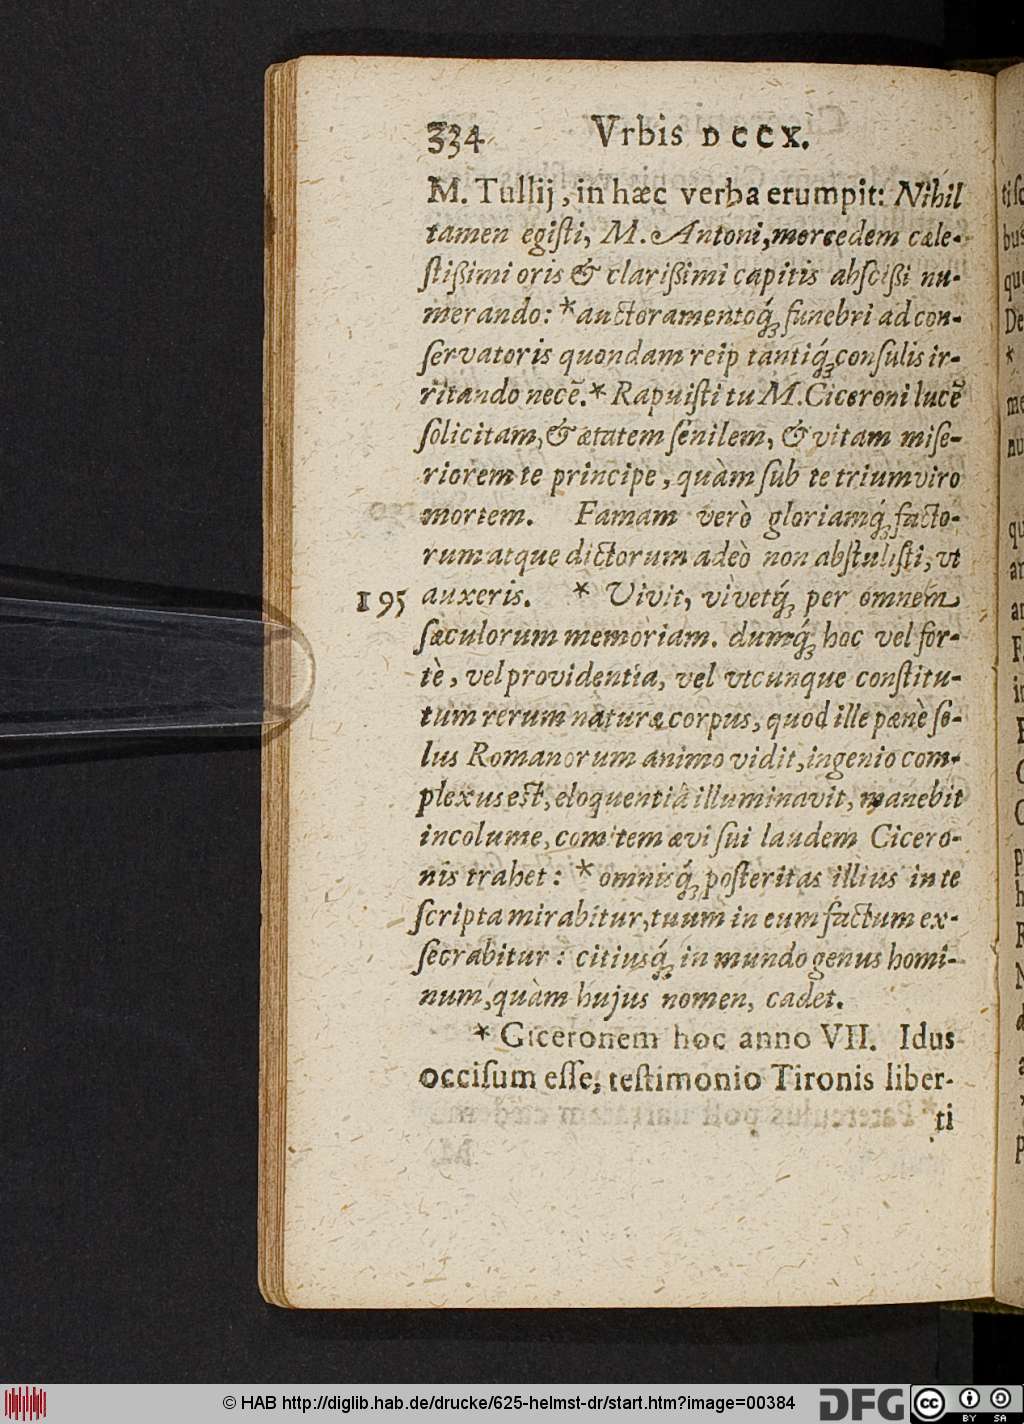 334 Vrbis DCCX.
M. Tullij, in hæc verba erumpit: Nihil
tamen egiſti, M. Antoni, mercedem cæle-
ſtißimi oris & clarißimi capitis abſcißi nu-
merando: * auctoramentoq́; funebri ad con-
ſervatoris quondam reip tantiq́; conſulis ir-
ritando necẽ. * Rapuiſti tu M. Ciceroni lucẽ
ſolicitam, & ætatem ſenilem, & vitam miſe-
riorem te principe, quàm ſub te triumviro
mortem. Famam verò gloriamq́; facto-
rum atque dictorum adeò non abſtuliſti, vt
195 auxeris. * Vivit, vivetq́; per omnem
ſæculorum memoriam. dumq́; hoc vel for-
tè, vel providentia, vel vtcunque conſtitu-
tum rerum naturæ corpus, quod ille pænè ſo-
lus Romanorum animo vidit, ingenio com-
plexus est, eloquentiâ illuminavit, manebit
incolume, comitem ævi ſui laudem Cicero-
nis trahet: * omnisq́; poſteritas illius in te
ſcripta mirabitur, tuum in eum factum ex-
ſecrabitur: citiusq́; in mundo genus homi-
num, quàm hujus nomen, cadet.
* Ciceronem hoc anno VII. Idus
occiſum eſſe, teſtimonio Tironis liber-
ti
© HAB http://diglib.hab.de/drucke/625-helmst-dr/start.htm?image=00384
DFG
cc BY SA